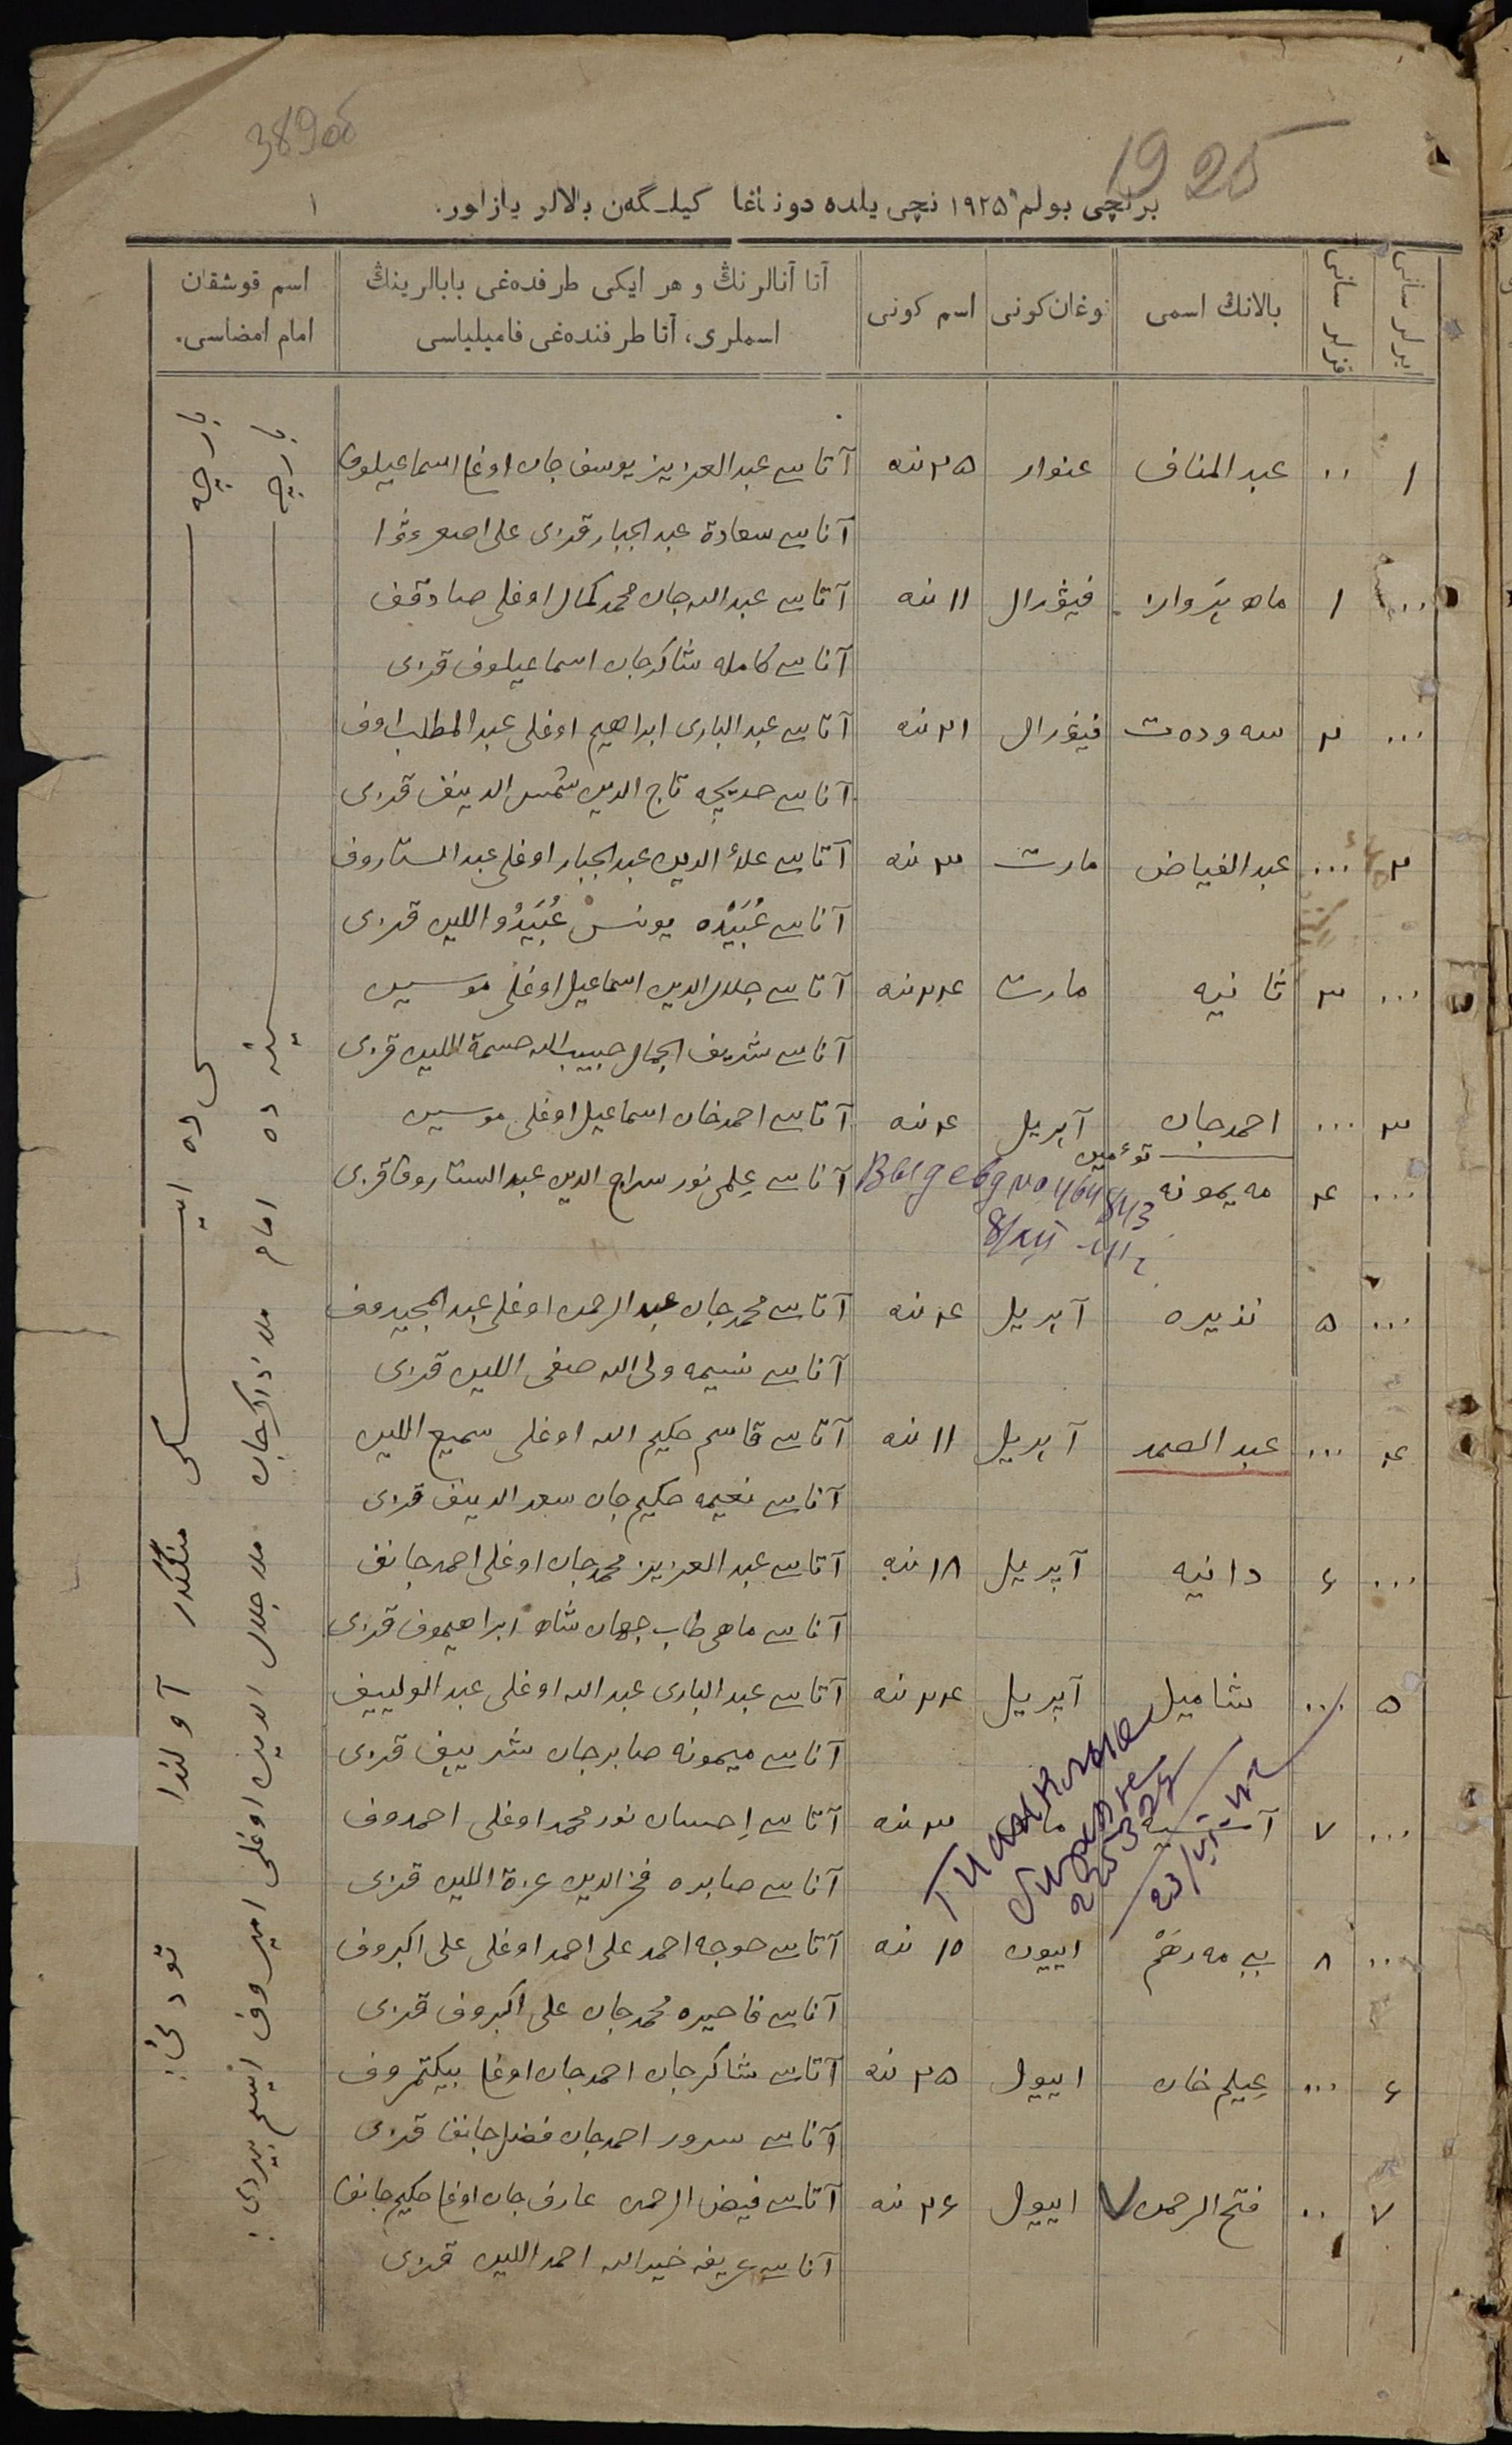 389об
1925
برنچی بولم ۱۹۲۵ نچی یلده دونیاغا کیلـگەن بالالر یازلور.
۱
ایرلر سانی
قزلر سانی
بالانڭ اسمی
توغان کونی
اسم کونی
آتا آنالرنڭ و هر ایکی طرفدەغی بابالرینڭ
اسملری، آتا طرفندەغی فامیلیاسی
اسم قوشقان
امام امضاسی.
۱ ٠٠ عبد المناف عنوار ۲۵ نده آتاسی عبد العزیز یوسف جان اوغلی اسماعیلوف
آناسی سعادة عبد الجبار قزی علی اصغروڤا
... ۱ ماه پروار فیڤرال ۱۱ نده آتاسی عبد الله جان محمد کمال اوغلی صادقف
آناسی کامله شاکرجان اسماعیلوف قزی
... ۲ سەودەت فیڤرال ۲۱ نده آتاسی عبد الباری ابراهیم اوغلی عبد المطلب اوف
آناسی خدیجه تاج الدین شمس الدینف قزی
۲ ... عبد الفیاض مارت ۳ نده آتاسی علاٴ الدین عبد الجبار اوغلی عبد الستاروف
آناسی عُبَیْده یونس عُبَیْدُو اللین قزی
... ۳ ثانیه مارت ۲۴ نده آتاسی جلال الدین اسماعیل اوغلی موسین
آناسی شریف الجمال حبیب الله حسمة اللین قزی
۳ ... احمدجان آپریل ۴ نده آتاسی احمدخان اسماعیل اوغلی موسین
توٴمین
... ۴ مەیمونه آناسی علمی نور سراج الدین عبد الستاروف قزی
8/XII-41г.
... ۵ نذیره آپریل ۴ نده آتاسی محمدجان عبد الرحمن اوغلی عبد المجیدوف
آناسی نسیمه ولی الله صفی اللین قزی
۴ ... عبد الصمد آپریل ۱۱ نده آتاسی قاسم حکیم الله اوغلی سمیع اللین
آناسی نعیمه حکیم جان سعد الدینف قزی
... ۶ دانیه آپریل ۱۸ نده آتاسی عبد العزیز محمدجان اوغلی احمدجانف
آناسی ماهی طاب جهان شاه ابراهیموف قزی
۵ ... شامیل آپریل ۲۴ نده آتاسی عبد الباری عبد الله اوغلی عبد الولییف
آناسی میمونه صابرجان شریپف قزی
... ۷ آسیه ۳ نده آتاسی اِحسان نورمحمد اوغلی احمدوف
آناسی صابره فخر الدین عزة اللین قزی
... ۸ بی مەرهَم اییون ۱۵ نده آتاسی خوجه احمد علی احمد اوغلی علی اکبروف
آناسی محمدجان علی اکبروف قزی
۶ ... عیلم خان اییول ۲۵ نده آتاسی شاکرجان احمدجان اوغلی بیکتمروف
آناسی سرور احمدجان فضل جانف قزی
۷ ٠٠ فتح الرحمن اییول ۲۶ نده آتاسی فیض الرحمن عارف جان اوغلی حکیم جانف
آناسی عریفه خیرالله احمد اللین قزی
بارچه سینه ده امام ملا ذاکرجان ملا جلال الدین اوغلی امیروف ایسم بیردی؛
بارچه سی ده ایسکی منگگر آولندا تودی؛